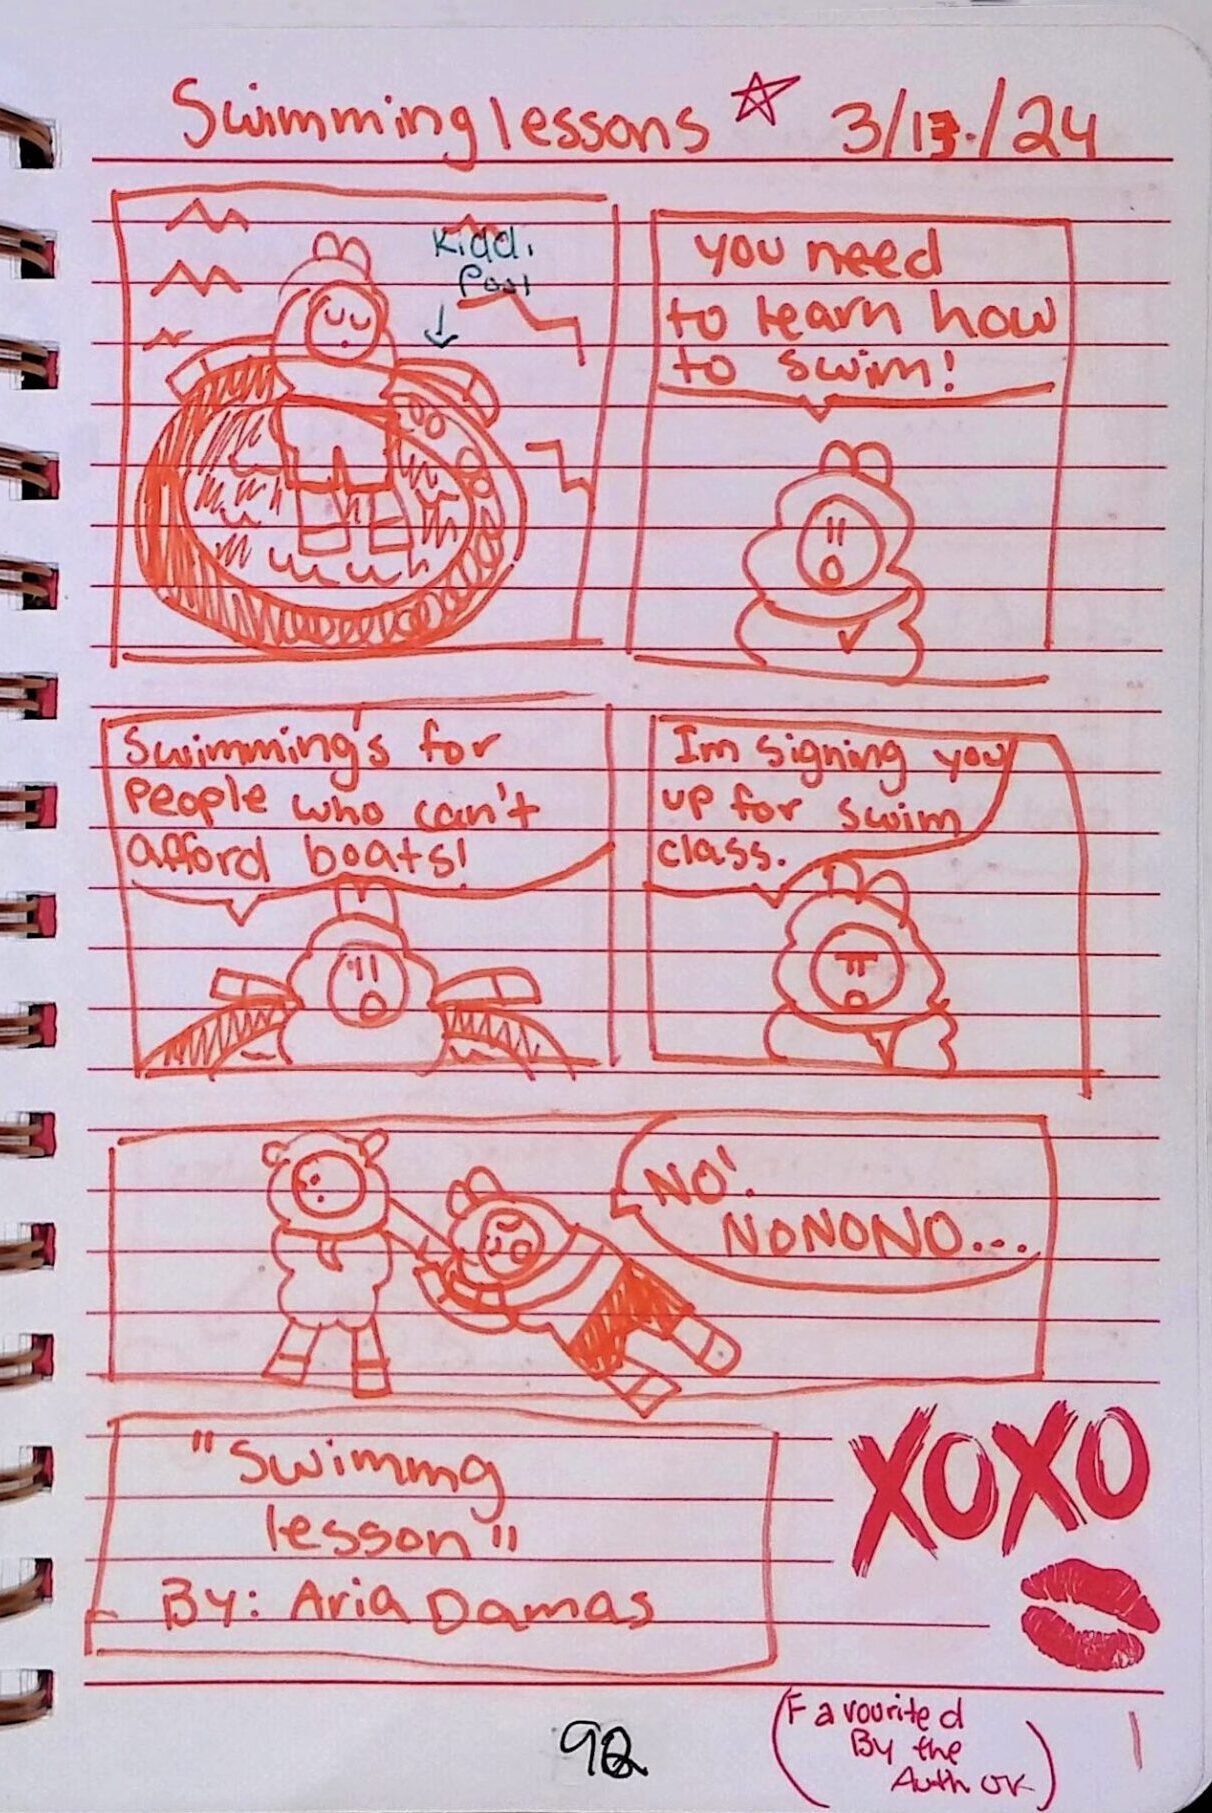 Swimming lessons 3/13./24
Kiddi
Pool
you need
to learn how
to swim!
Swimming's for
People who can't
afford boats!
Im signing you
up for swim
class.
NO!
NONONO...
"Swimmg
lesson"
By: Aria Damas
XOXO
92
(Favourited
By the
Author)